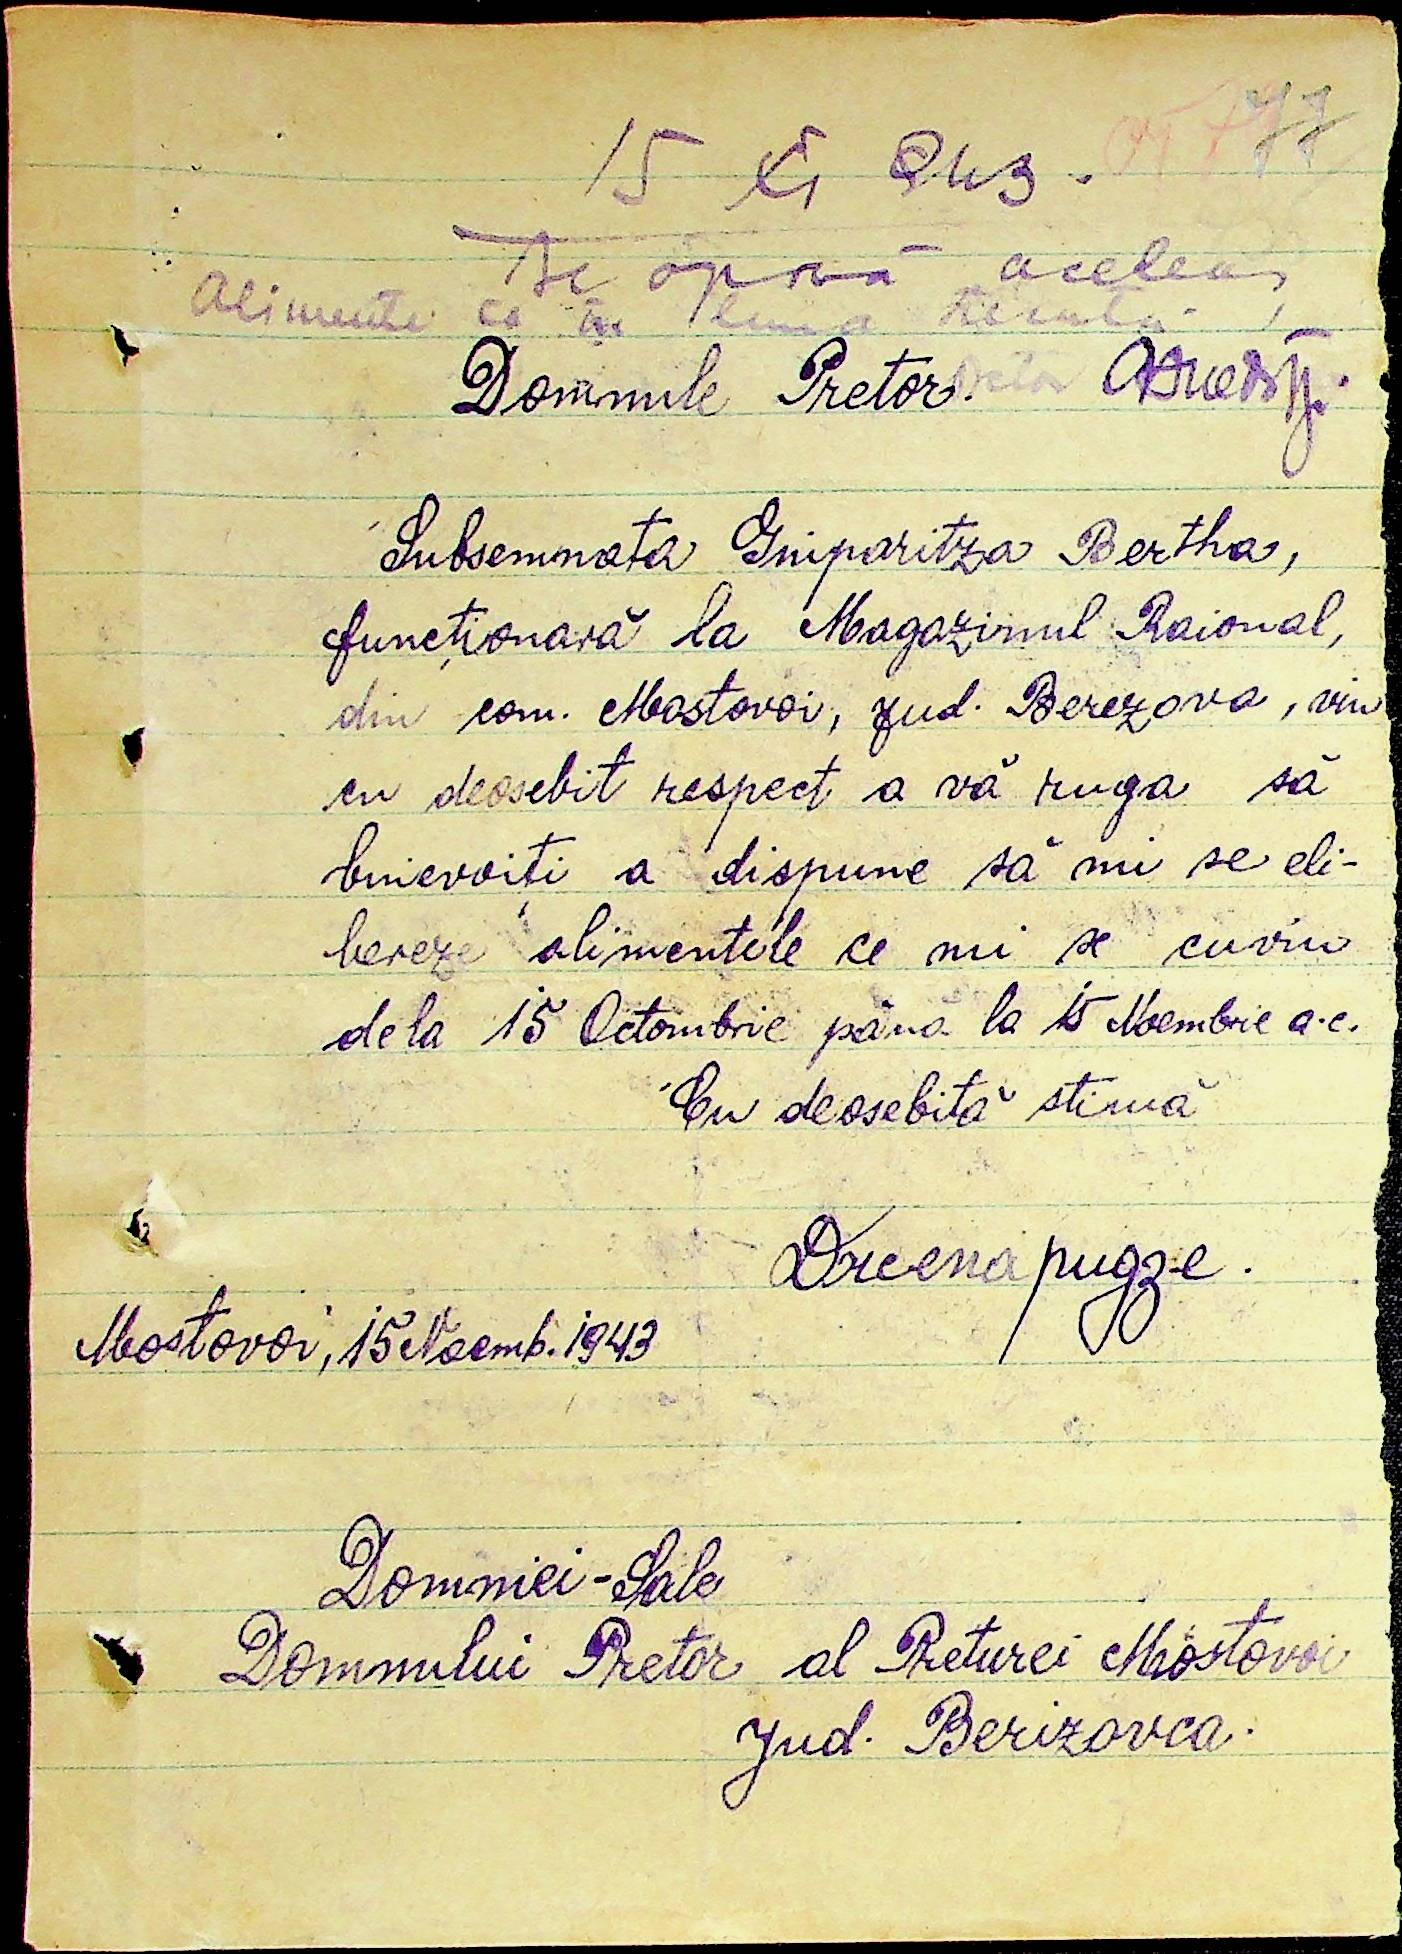 77
15 XI 943.
Se aprobă aceleaș
Alimente ca în luna trecută.
Domnule Pretor.
Subsemnata Gniparitza Bertha,
funcționară la Magazinul Raional,
din com. Mostovoi, jud. Berezova, vin
cu deosebit respect a vă ruga să
binevoiți a dispune să mi se eli-
bereze alimentele ce mi se cuvin
dela 15 Octombrie până la 15 Noembrie a.c.
Cu deosebită stimă
Mostovoi, 15 Noemb. 1943
Domniei-Sale
Domnului Pretor al Preturei Mostovoi
Jud. Berizovca.